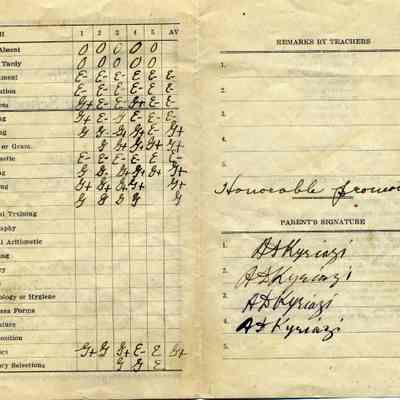 H 1 2 3 4 5 AV
Absent 0 0 0 0 0
Tardy 0 0 0 0 0
tment E- E- E- E E E-
ation E- E- E- E- E E-
ess G+ E- E- G+ E- E-
ng G+ E- G E- E- E-
ng G G- G G+ E- G+
or Gram. G G+ G+ G+ G+
metic E- E- E- E- E E-
ng G G- G+ G+ G+ G+
ng G+ G+ G+ G+ G+
G G G G G
l Training
aphy
al Arithmetic
ng
ry
ology or Hygiene
ess Forms
ature
position
ics G+ G G+ E- E G+
ary Selections G G E
REMARKS BY TEACHERS
1.
2.
3.
4.
5.
Honorable
PARENT'S SIGNATURE
1. A D Kyriazi
2. A D Kyriazi
3. A D Kyriazi
4. A D Kyriazi
5.